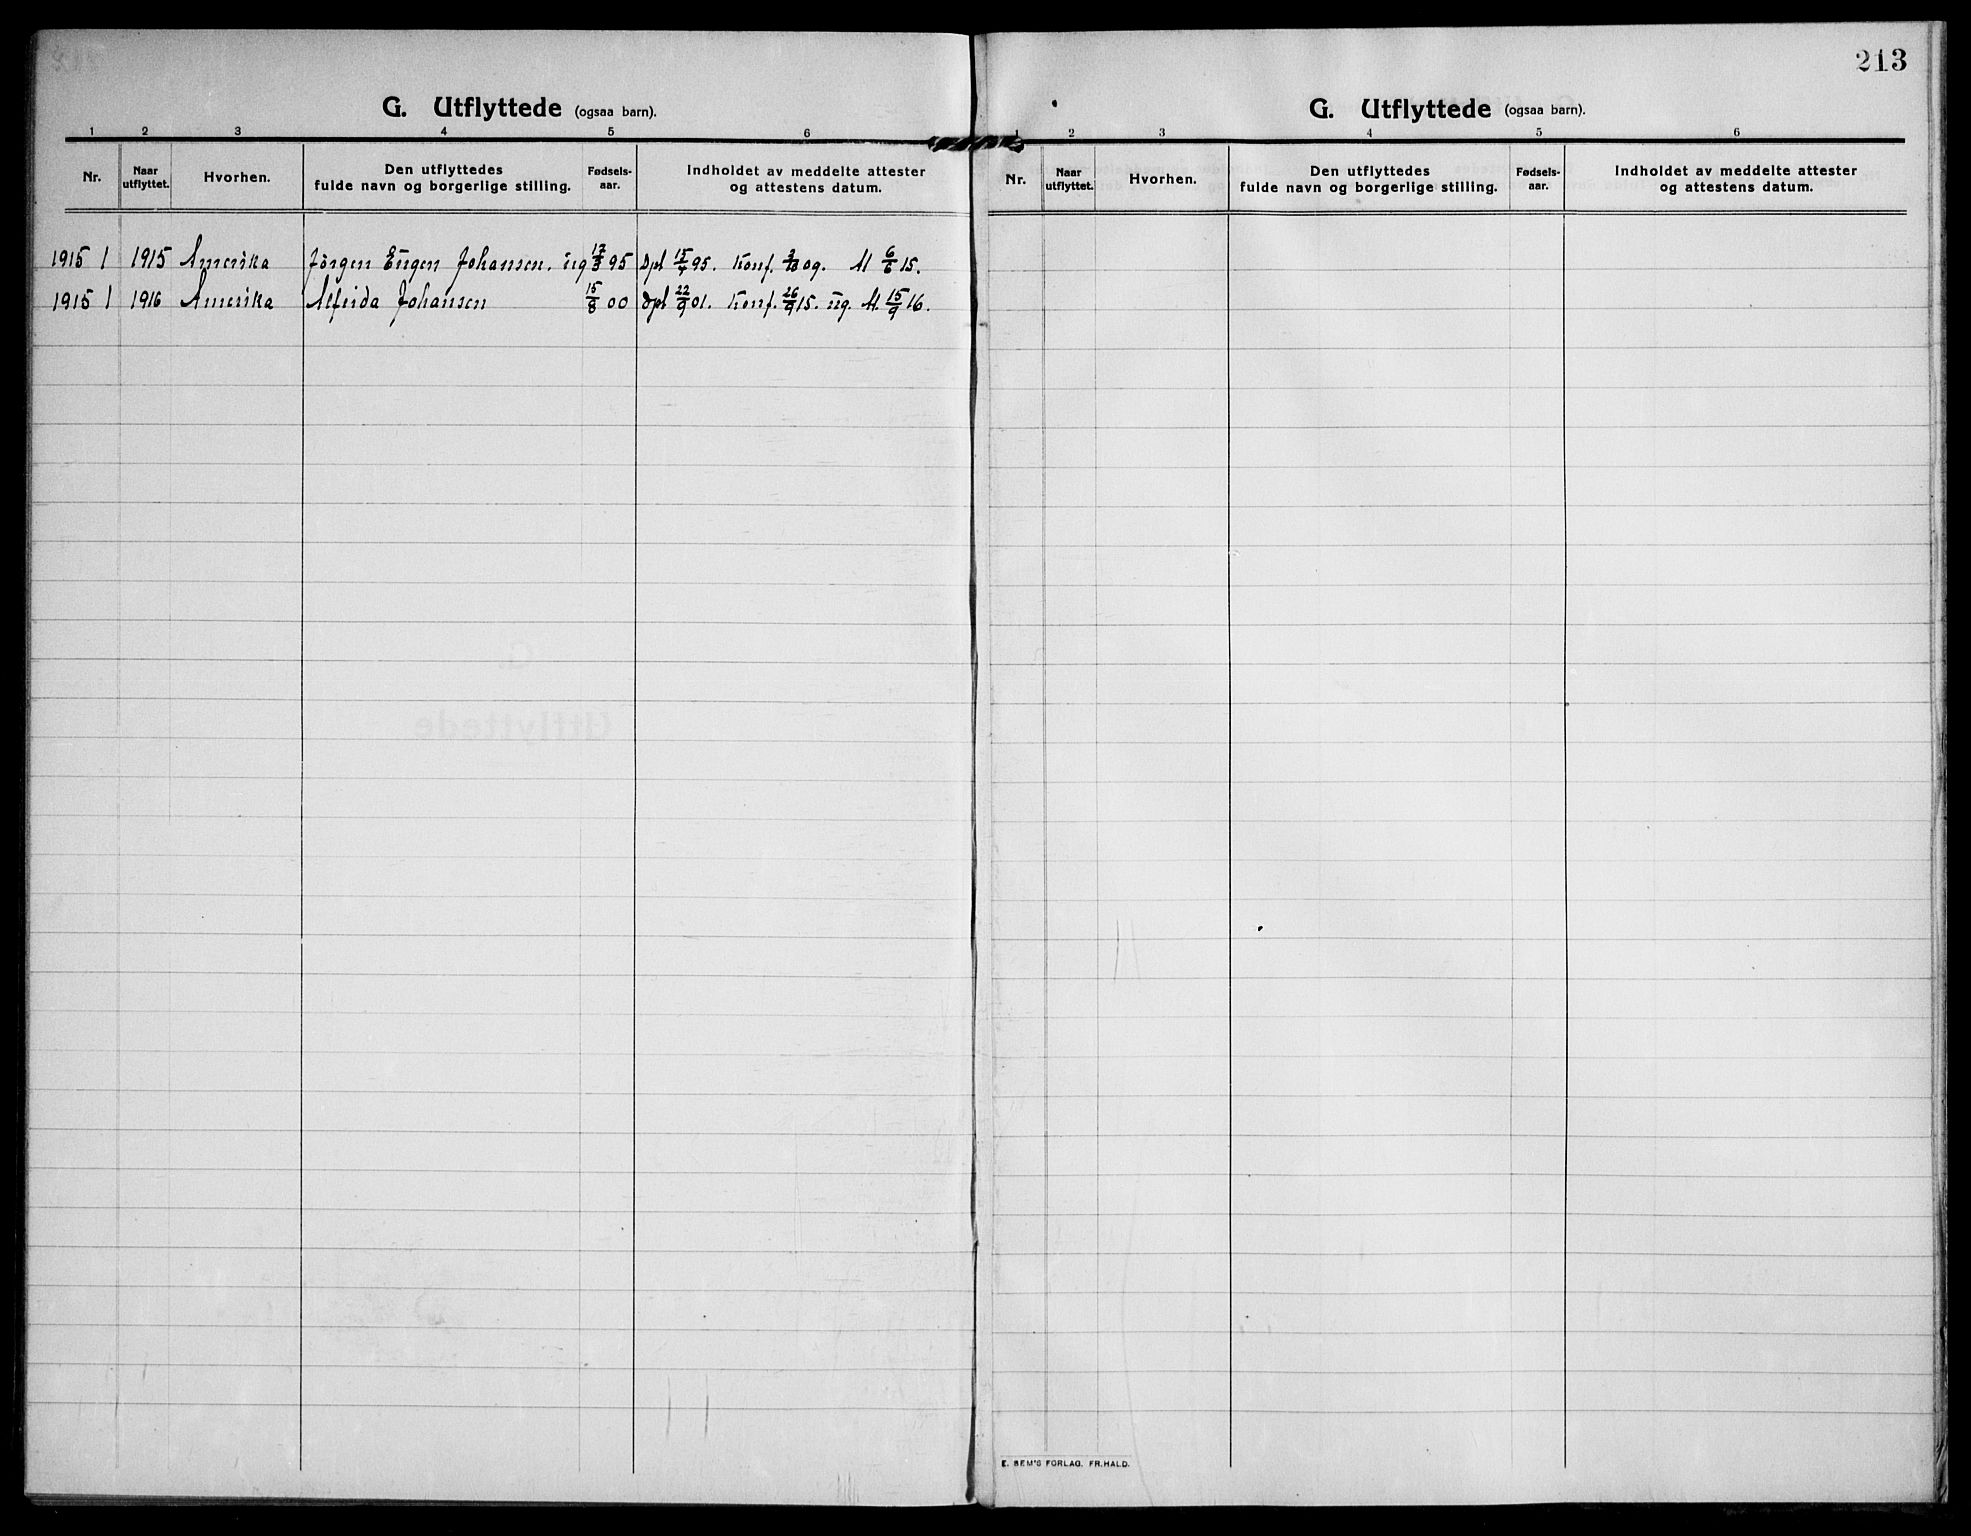 G. Utflyttede (ogsaa barn).
1 2 3 4 5 6
Nr. Naar utflyttet. Hvorhen. Den utflyttedes fulde navn og borgerlige stilling. Fødsels-aar. Indholdet av meddelte attester og attestens datum.
1915 1 1915 Amerika Jörgen Eugen Johansen. ug 17/3 95 Dpt 15/4 95. Konf. 3/10 09. At 6/6 15.
1915 1 1916 Amerika Alfrida Johansen 15/8 00 Dpt 22/9 01. Konf. 26/9 15. ug. At. 15/9 16.
213
G. Utflyttede (ogsaa barn).
1 2 3 4 5 6
Nr. Naar utflyttet. Hvorhen. Den utflyttedes fulde navn og borgerlige stilling. Fødsels-aar. Indholdet av meddelte attester og attestens datum.
E. SEM'S FORLAG. FR. HALD.